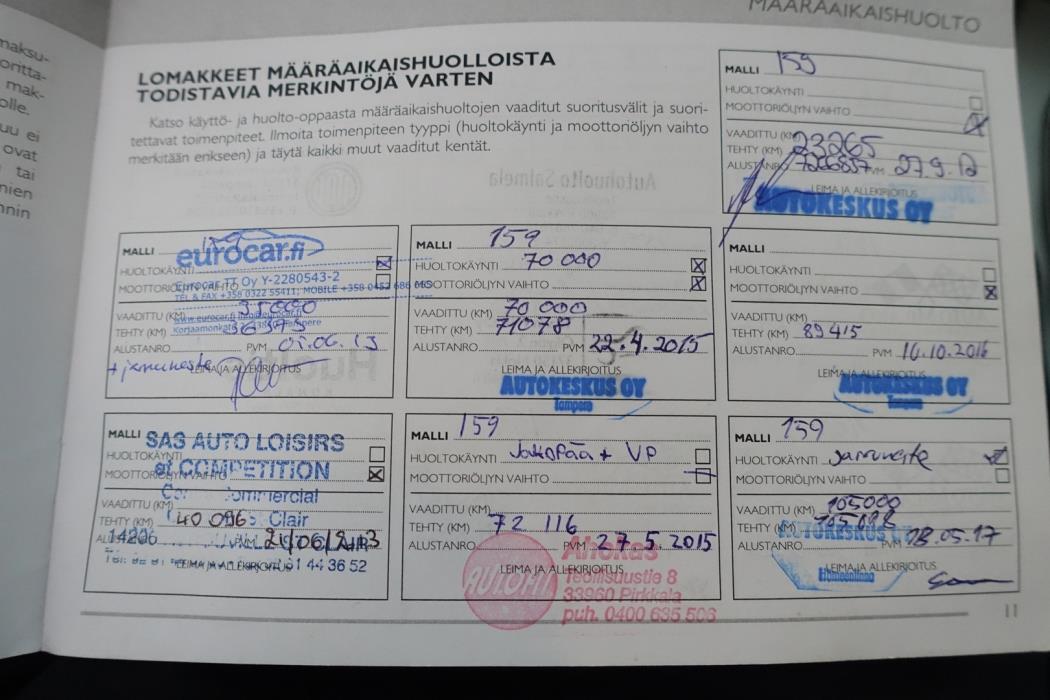 maksu-
oritta-
mak-
olle.
uu ei
ovat
tai
nien
nnin
MÄÄRÄAIKAISHUOLTO
LOMAKKEET MÄÄRÄAIKAISHUOLLOISTA
TODISTAVIA MERKINTÖJÄ VARTEN
Katso käyttö- ja huolto-oppaasta määräaikaishuoltojen vaaditut suoritusvälit ja suori-
tettavat toimenpiteet. Ilmoita toimenpiteen tyyppi (huoltokäynti ja moottoriöljyn vaihto
merkitään erikseen) ja täytä kaikki muut vaaditut kentät.
MALLI 159
HUOLTOKÄYNTI
MOOTTORIÖLJYN VAIHTO
VAADITTU (KM)
TEHTY (KM) 23265
ALUSTANRO 7266857 PVM 27.9.12
LEIMA JA ALLEKIRJOITUS
AUTOKESKUS OY
MALLI 159
eurocar.fi
HUOLTOKÄYNTI
Eurocar TT Oy Y-2280543-2
MOOTTORIÖLJYN VAIHTO
TEL & FAX +358 0322 55411; MOBILE +358 0452 686
VAADITTU (KM) 35000
www.eurocar.fi
TEHTY (KM)
ALUSTANRO PVM 01.06.13
LEIMA JA ALLEKIRJOITUS
MALLI 159
HUOLTOKÄYNTI 70 000
MOOTTORIÖLJYN VAIHTO
VAADITTU (KM) 70 000
TEHTY (KM) 71078
ALUSTANRO PVM 22.4.2015
LEIMA JA ALLEKIRJOITUS
AUTOKESKUS OY
Tampere
MALLI
HUOLTOKÄYNTI
MOOTTORIÖLJYN VAIHTO
VAADITTU (KM)
TEHTY (KM) 89415
ALUSTANRO PVM 14.10.2016
LEIMA JA ALLEKIRJOITUS
AUTOKESKUS OY
Tampere
MALLI
SAS AUTO LOISIRS
HUOLTOKÄYNTI
et COMPETITION
MOOTTORIÖLJYN VAIHTO
Commercial
VAADITTU (KM)
Clair
TEHTY (KM) 40 096
14206
ALUSTANRO PVM 21/06/2013
LEIMA JA ALLEKIRJOITUS
44 36 52
MALLI 159
HUOLTOKÄYNTI Jakopää + VP
MOOTTORIÖLJYN VAIHTO
VAADITTU (KM)
TEHTY (KM) 72 116
ALUSTANRO PVM 27.5.2015
LEIMA JA ALLEKIRJOITUS
AUTOFIT
Ahokas
Teollisuustie 8
33960 Pirkkala
puh. 0400 635 506
MALLI 159
HUOLTOKÄYNTI Jarruneste
MOOTTORIÖLJYN VAIHTO
VAADITTU (KM) 105000
TEHTY (KM)
AUTOKESKUS OY
ALUSTANRO PVM 18.05.17
LEIMA JA ALLEKIRJOITUS
Hämeenlinna
11